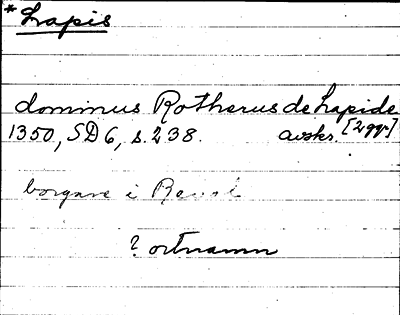 *Lapis
dominus Rotherus de Lapide
1350, SD6, s. 238. avskr. [2 ggr]
borgare i Reval
? ortnamn